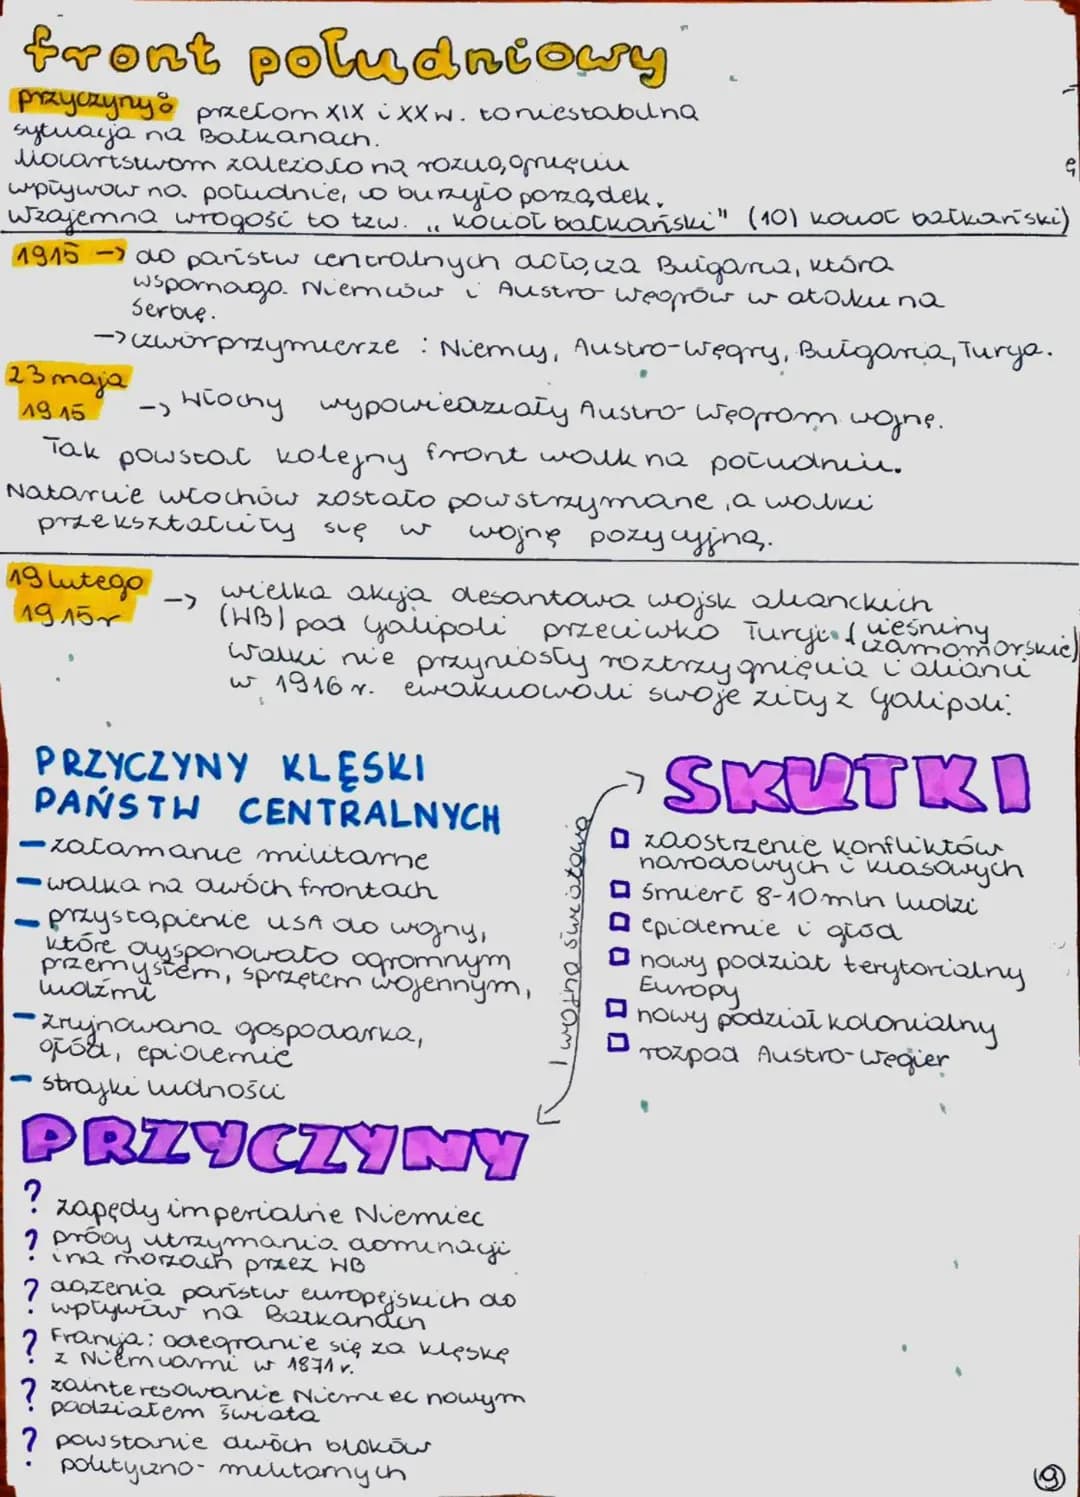 front południowy
przyczyny: przełom XIX i XX w. to niestabilna
sytuacja na Bałkanach.
Mocarstwom zależało na rozciągnięciu
wpływów na południe, co burzyło porządek.
Wzajemna wrogość to tzw. „kocioł bałkański" (10) kocioł bałkański)
1915 → do państw centralnych dołącza Bułgaria, która
wspomaga Niemców i Austro-Węgrów w ataku na
Serbię.
→ czwórprzymierze : Niemcy, Austro-Węgry, Bułgaria, Turcja.
23 maja
1915 → Włochy wypowiedziały Austro-Węgrom wojnę.
Tak powstał kolejny front walk na południu.
Natarcie Włochów zostało powstrzymane, a walki
przekształciły się w wojnę pozycyjną.
19 lutego
1915r → wielka akcja desantowa wojsk alianckich
(WB) pod Galipoli przeciwko Turcji (cieśniny
czarnomorskie)
Walki nie przyniosły roztrzygnięcia i alianci
w 1916 r. ewakuowali swoje siły z Galipoli.
PRZYCZYNY KLĘSKI
PAŃSTW CENTRALNYCH
- załamanie militarne
- walka na dwóch frontach
- przystąpienie USA do wojny,
które dysponowało ogromnym
przemysłem, sprzętem wojennym,
ludźmi
- zrujnowana gospodarka,
głód, epidemie
- strajki ludności
I wojna światowa
SKUTKI
zaostrzenie konfliktów
narodowych i klasowych
śmierć 8-10 mln ludzi
epidemie i głód
nowy podział terytorialny
Europy
nowy podział kolonialny
rozpad Austro-Węgier
PRZYCZYNY
? zapędy imperialne Niemiec
? próby utrzymania dominacji
i na morzach przez WB
? dążenia państw europejskich do
wpływów na Bałkanach
? Francja: odegranie się za klęskę
z Niemcami w 1871 r.
? zainteresowanie Niemiec nowym
podziałem świata
? powstanie dwóch bloków
polityczno-militarnych
9